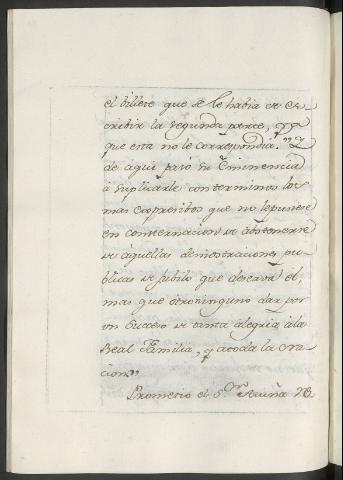 el billete que se le habia de es-
cribir la segunda parte, pr
que esta no le correspondia. Y
de aqui pasó su Eminencia
à suplicarle con terminos los
mas expresivos que no le pusiese
en consternacion de abstenerse
de aquellas demostraciones pu-
blicas de jubilo que deseava él,
mas que otro ninguno dar por
un suceso de tanta alegria à la
Real Familia, y a toda la Na-
cion.
Prometio el Sor Acuña